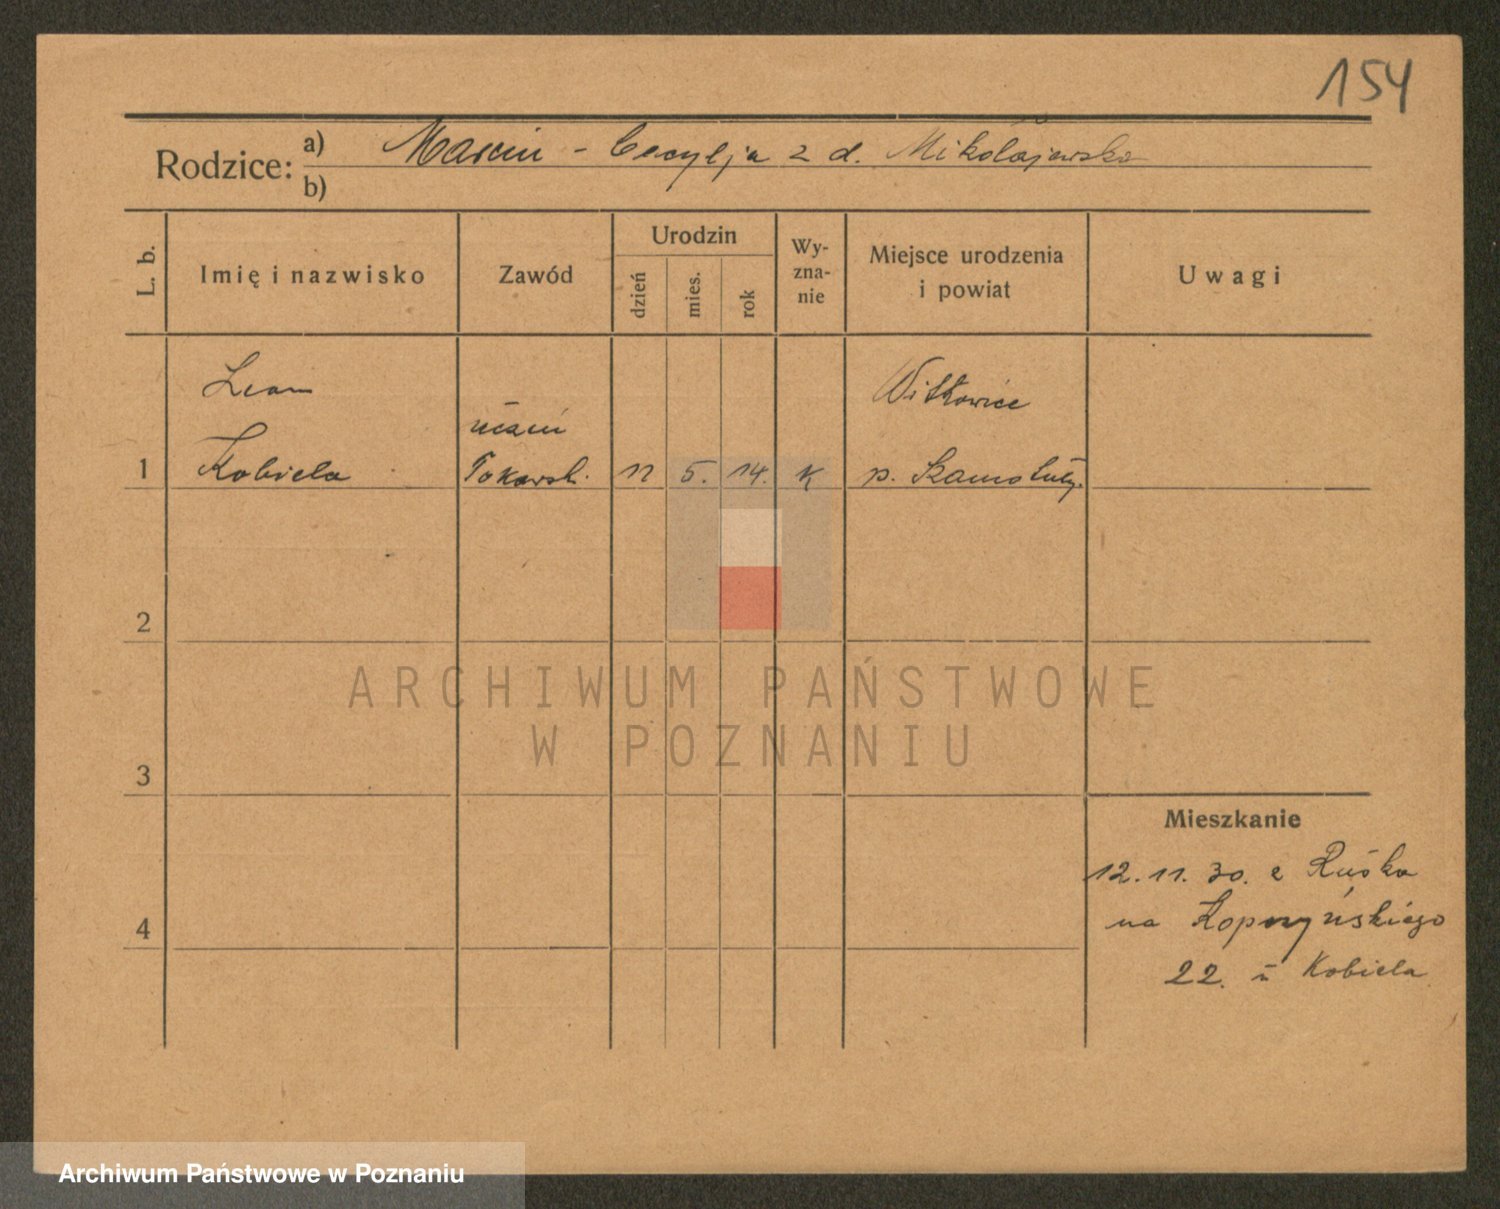 154
Rodzice: a) Marcin - Cecylja z d. Mikołajewska
b)
L. b.
Imię i nazwisko
Zawód
Urodzin
dzień
mies.
rok
Wy-
zna-
nie
Miejsce urodzenia
i powiat
Uwagi
Leon
Witkowice
uczeń
1 Kobiela Tokarski 11 5. 14. K p. Szamotuły.
2
3
4
Mieszkanie
12.11.30. z
na
22. u Kobiela
ARCHIWUM PAŃSTWOWE
W POZNANIU
Archiwum Państwowe w Poznaniu